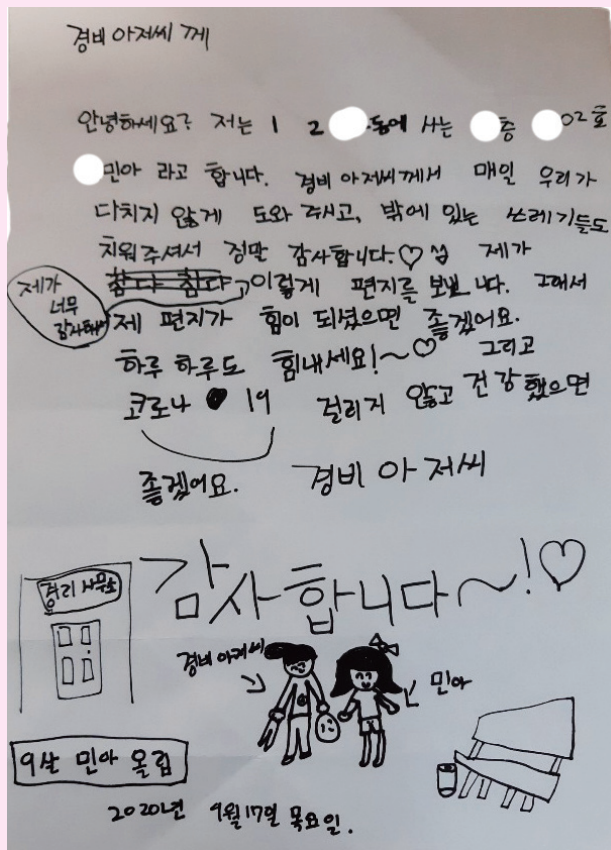 경비 아저씨 께
안녕하세요? 저는 1 2 동에 사는 층 02호
민아 라고 합니다. 경비 아저씨께서 매일 우리가
다치지 않게 도와 주시고, 밖에 있는 쓰레기들도
치워주셔서 정말 감사합니다.♡ 제가
제가 너무 감사해서
이렇게 편지를 보냅니다. 그래서
제 편지가 힘이 되셨으면 좋겠어요.
하루 하루도 힘내세요!~♡ 그리고
코로나 19 걸리지 않고 건강했으면
좋겠어요. 경비 아저씨
감사합니다~!♡
사무소
경비 아저씨
민아
9살 민아 올림
2020년 9월17일 목요일.